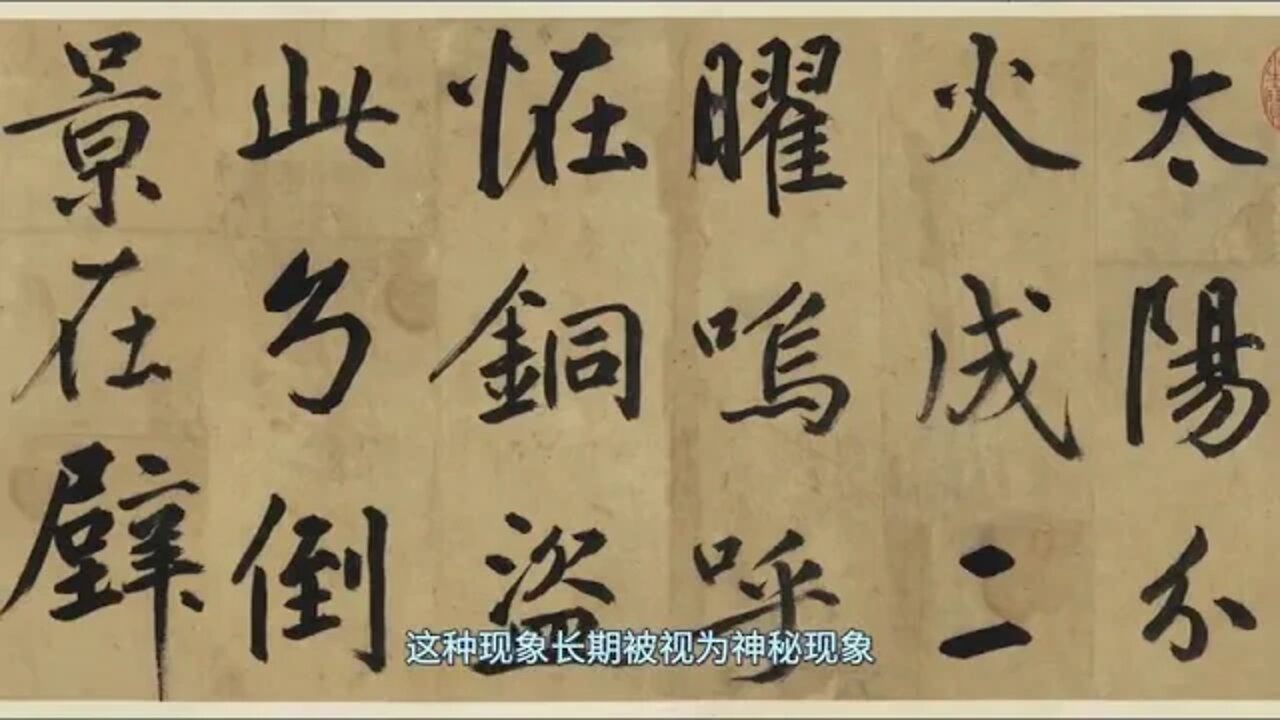 太陽分
火成二
曜嗚呼
恠銅盜
此乃倒
景在壁
这种现象长期被视为神秘现象